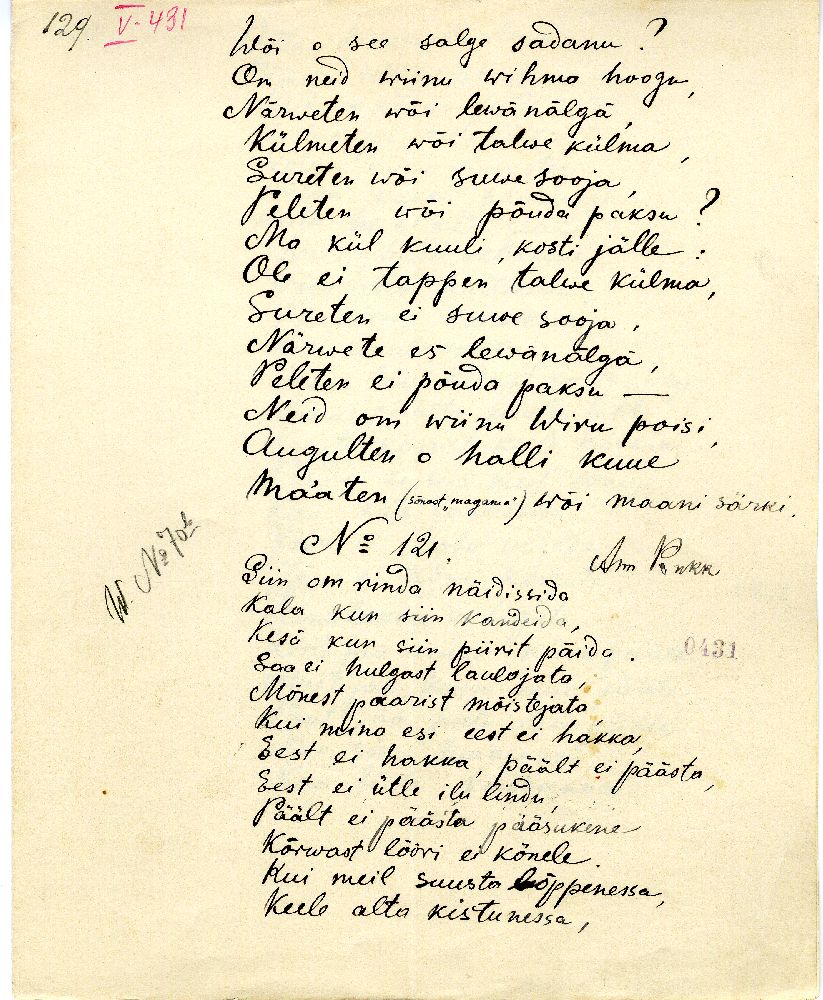 129. V-431
Wõi o see salge sadanu?
Om neid wiinu wihma hoogu,
Närweten wõi lewänälgä,
Külmeten wõi talwe külma,
Sureten wõi suwe sooja,
Peleten wõi põuda paksu?
Ma kül kuuli, kosti jälle:
Ole ei tappen talwe külma,
Sureten ei suwe sooja,
Närwete es lewänälgä,
Peleten ei põuda paksu —
Neid om wiinu Wiru poisi,
Augulten o halli kuue
Määten (sõnast „magama") wõi maani särki.
№ 121.
Ann
W. №
Siin om rinda näidissida
Kala kun siin kandeida,
Kesä kun siin piirit päida.
0431
Saa ei hulgast laulajata,
Mõnest paarist mõistejata
Kui mina esi eest ei hakka,
Eest ei hakka, päält ei päästa,
Eest ei ütle ilu lindu,
Päält ei päästa pääsukene
Kõrwast lööri ei kõnele.
Kui meil suusta lõppenessa,
Keele alta kistunessa,